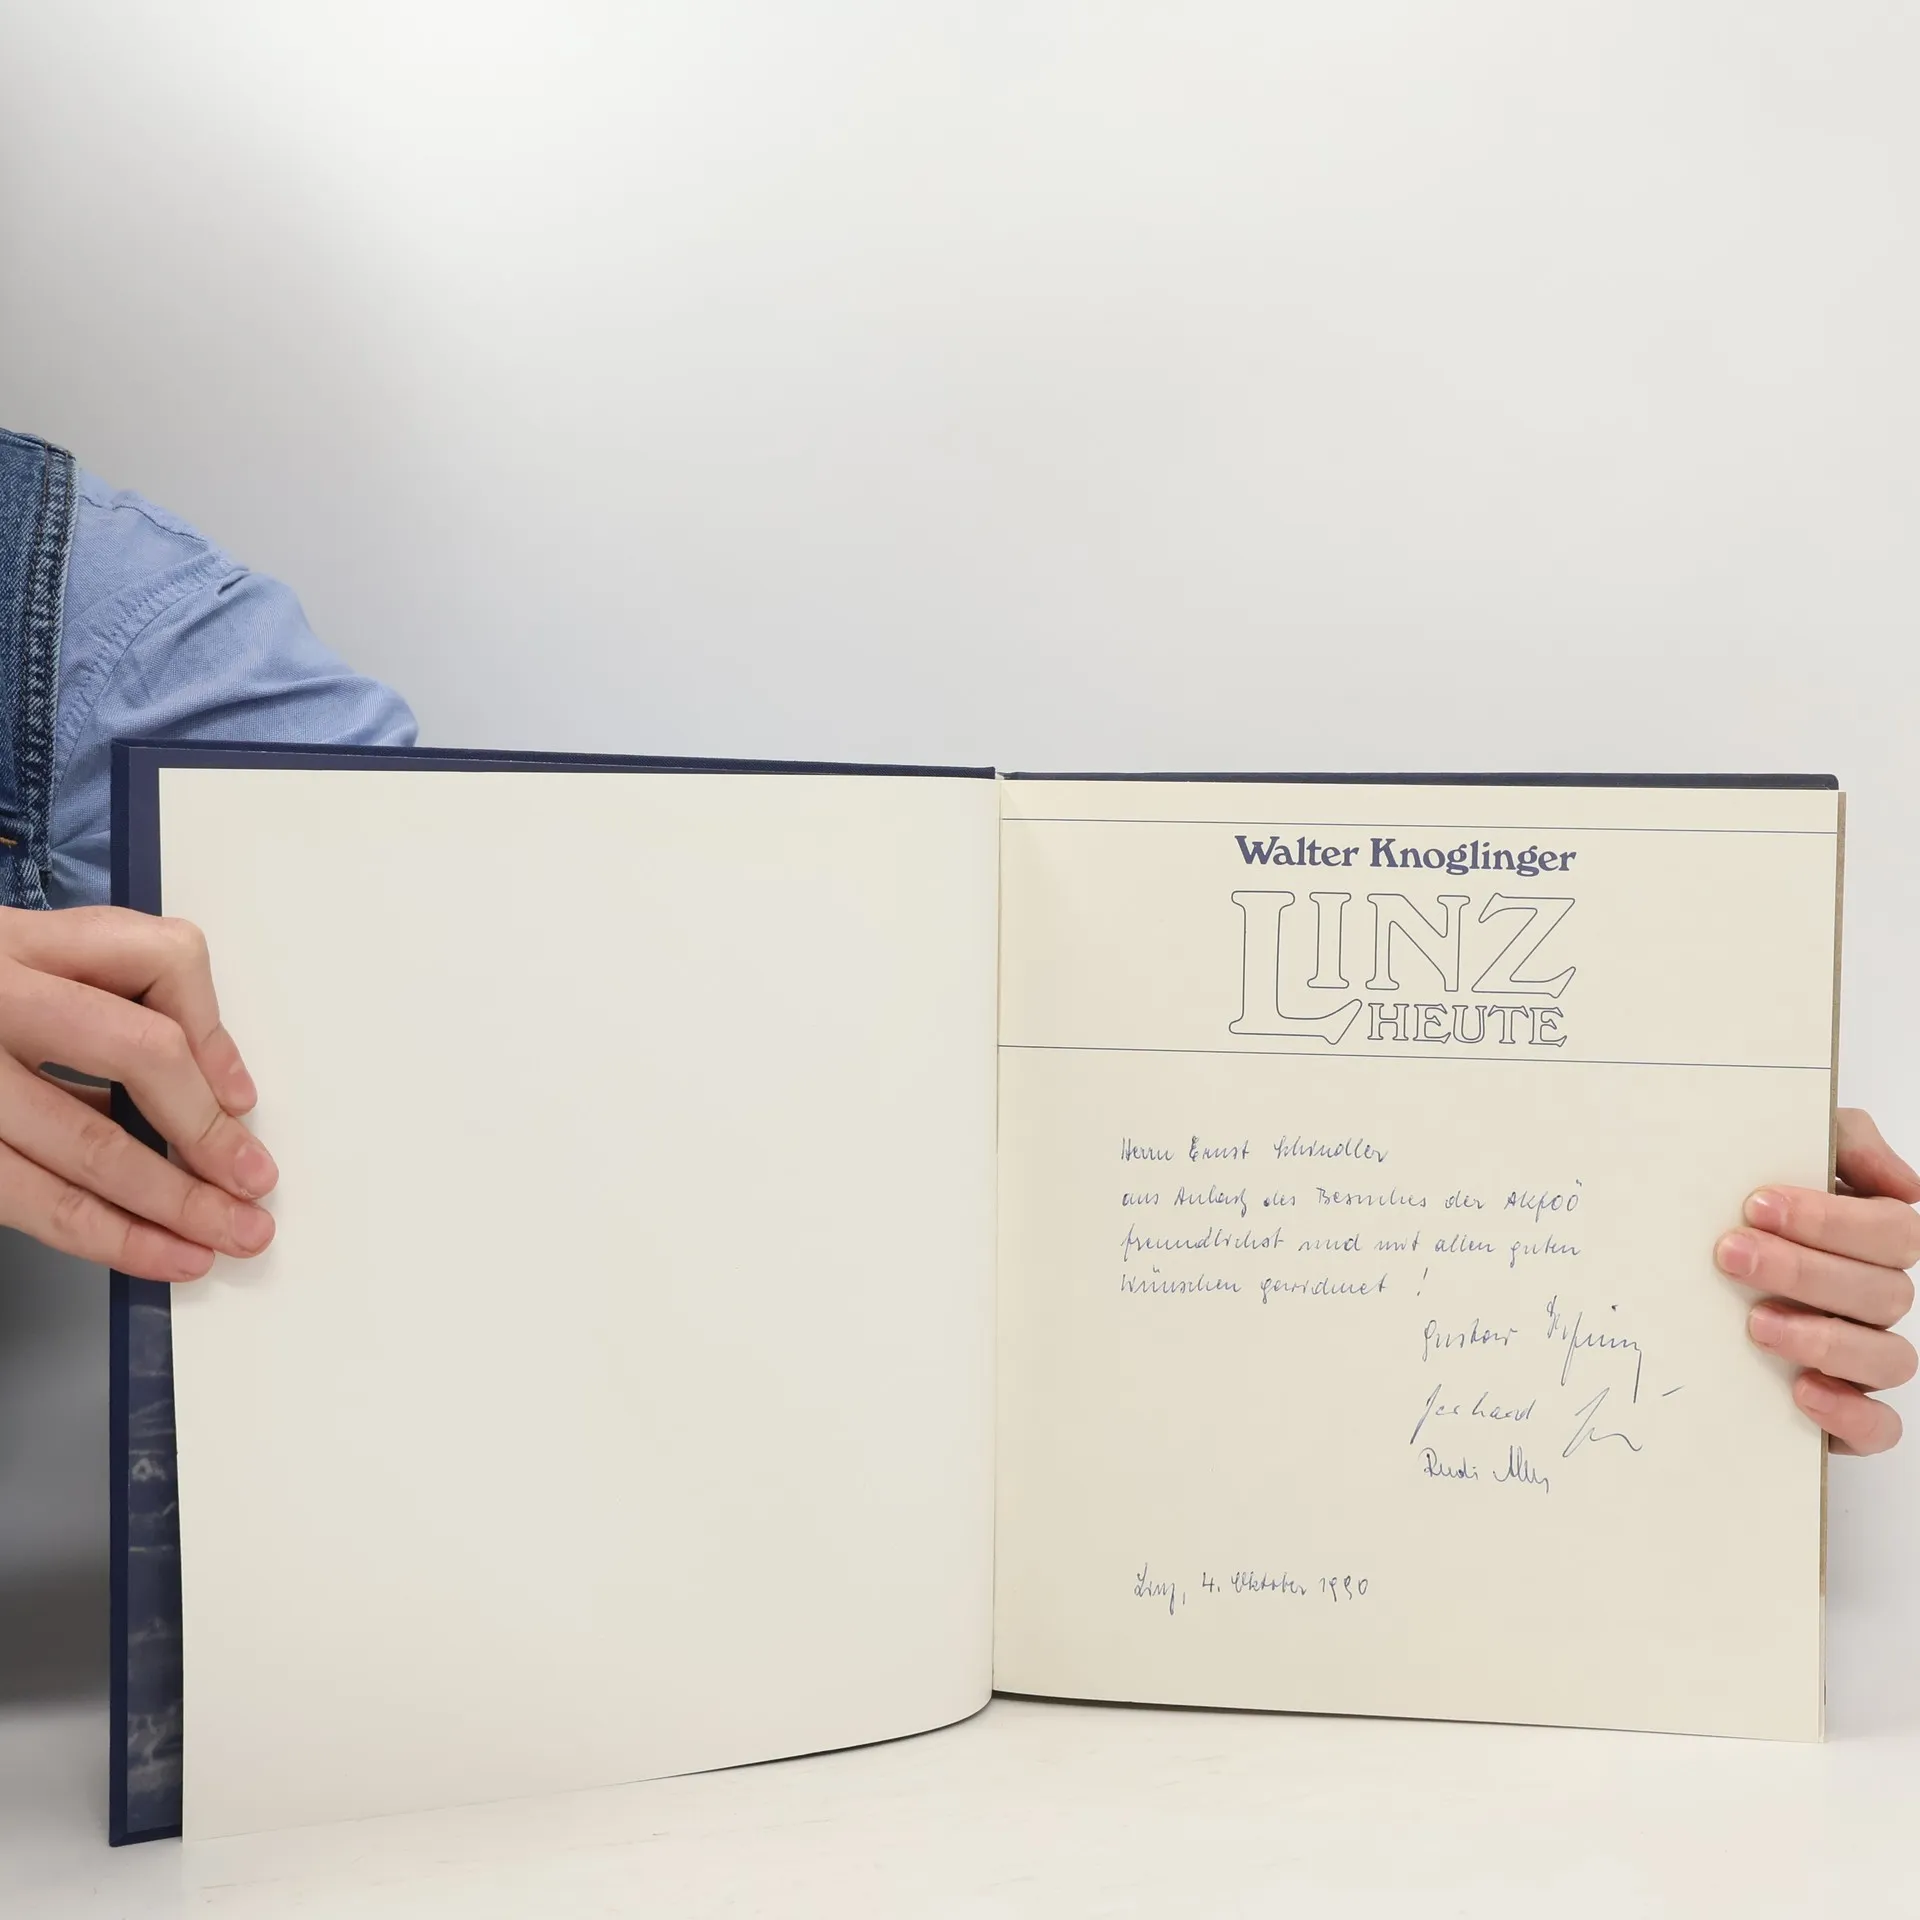 Walter Knoglinger
LINZ
HEUTE
Herrn Ernst Schindler
aus Anlaß des Besuches der AKfOÖ
freundlichst und mit allen guten
Wünschen gewidmet !
Gustav
Gerhard
Rudi
Linz, 4. Oktober 1990